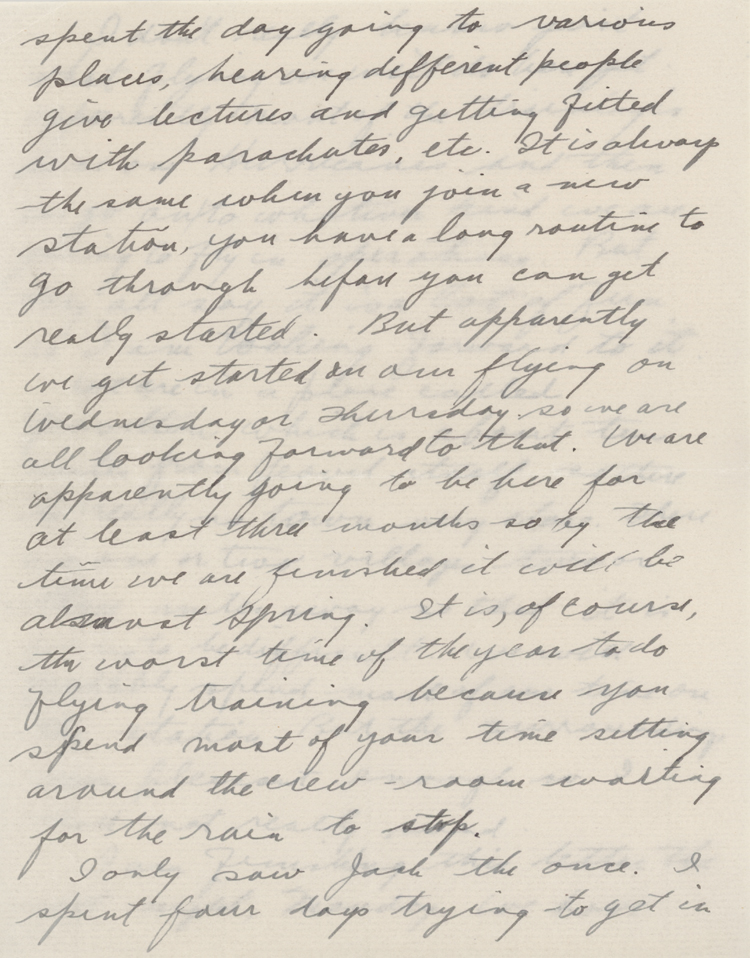 spent the day going to various
places, hearing different people
give lectures and getting fitted
with parachutes, etc. It is always
the same when you join a new
station, you have a long routine to
go through before you can get
really started. But apparently
we get started on our flying on
Wednesday or Thursday so we are
all looking forward to that. We are
apparently going to be here for
at least three months so by the
time we are finished it will be
almost Spring. It is, of course,
the worst time of the year to do
flying training because you
spend most of your time sitting
around the crew-room waiting
for the rain to stop.
I only saw Jack the once. I
spent four days trying to get in